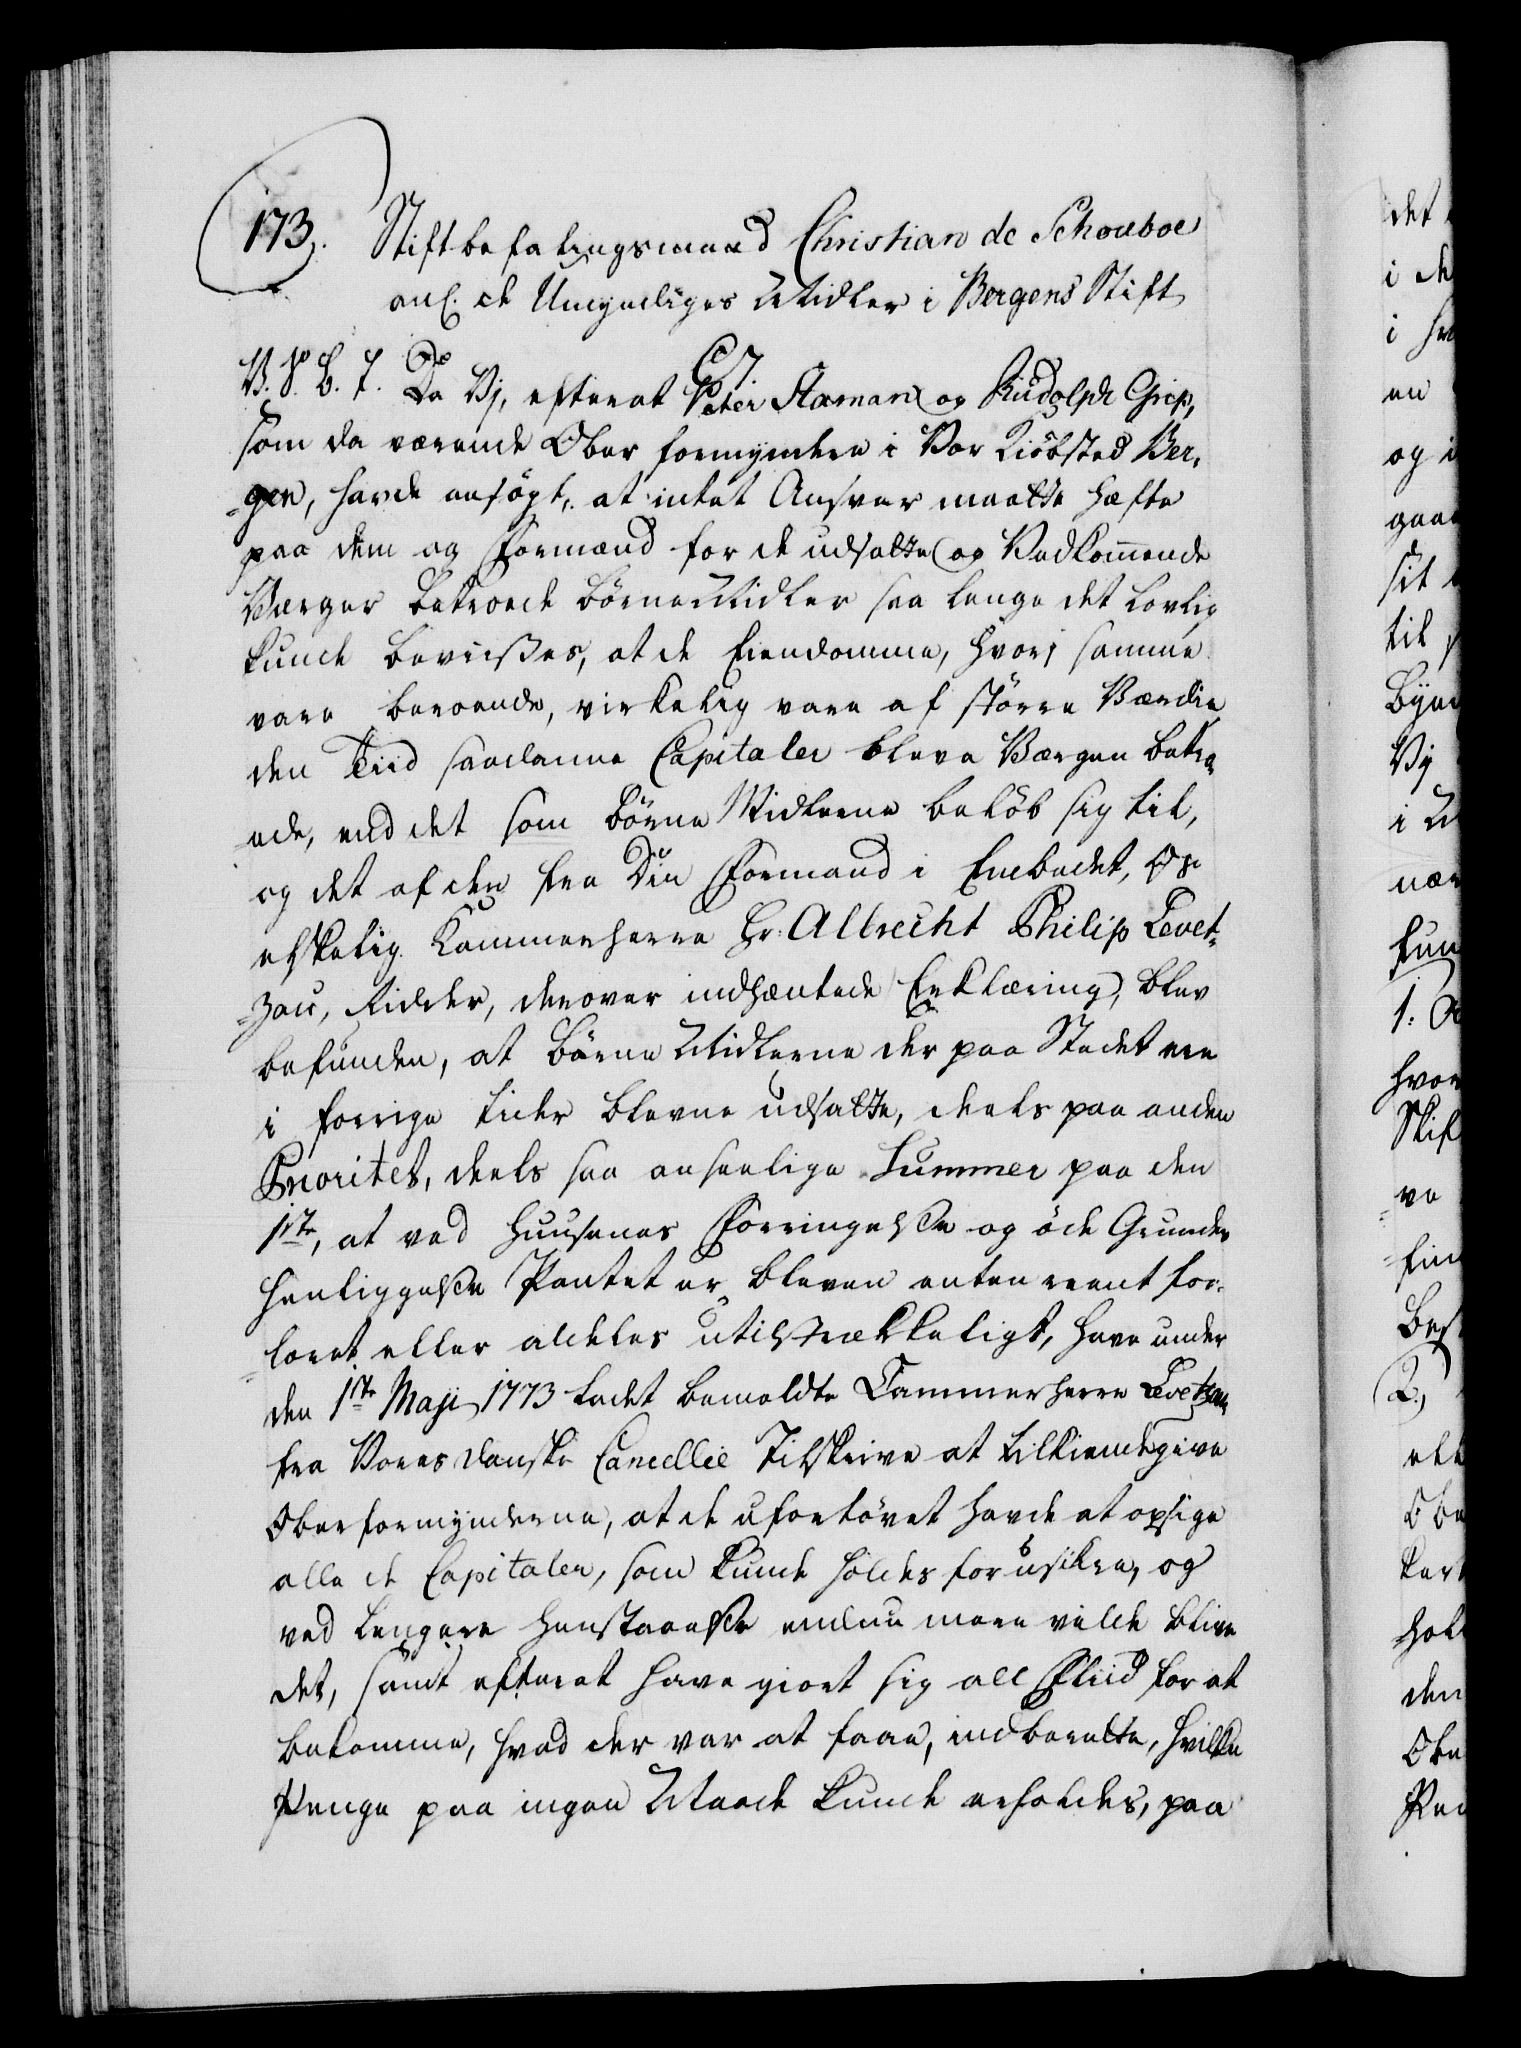 173. Stiftbefalingsmand Christian de Schouboe
anl. de Umyndiges Midler i Bergens Stift
V. S. B. T. Da Vj, efterat Peter Axman og Rudolph Grip,
som da værende Ober formyndere i Vor Kiöbsted Ber,
=gen, havde ansögt, at intet Ansvar maatte hæfte
paa dem og Formænd for de udsatte og Vedkom̄ende
Værger betroede Börne Midler saa lenge det lovlig
kunde beviises, at de Eiendomme, hvorj samme
vare beroende, virkelig vare af större Værdie
den Tiid saadanne Capitaler bleve Værgen betro
ede, end det som Börne Midlerne belöb sig til,
og det af den fra Din Formand i Embedet, Os
elskelig Kammerherre Hr. Albrecht Philip Levet,
=zau, Ridder, derover indhæntede Erklæring, blev
befunden, at Börne Midlerne der paa Stedet ere
i forrige tider blevne udsatte, deels paa anden
Prioritet, deels saa anseelige Summer paa den
1ste, at ved Huusenes Forringelse og öde Grundes
Henliggelse Pantet er bleven enten reent for-
=loret eller aldeles utilstrækkeligt, have under
den 1ste Maji 1773 ladet bemeldte Cammerherre Levetzau
fra Vores danske Cancellie Tilskrive at tilkiendegive
Oberformynderne, at de ufortövet havde at opsige
alle de Capitaler, som kunde holdes for usikre, og
ved lengere Henstaaelse endnu mere vilde blive
det, samt efterat have giort sig all Fliid for at
bekomme, hvad der var at faae, indberette, hvilke
Penge paa ingen Maade kunde erholdes, paa